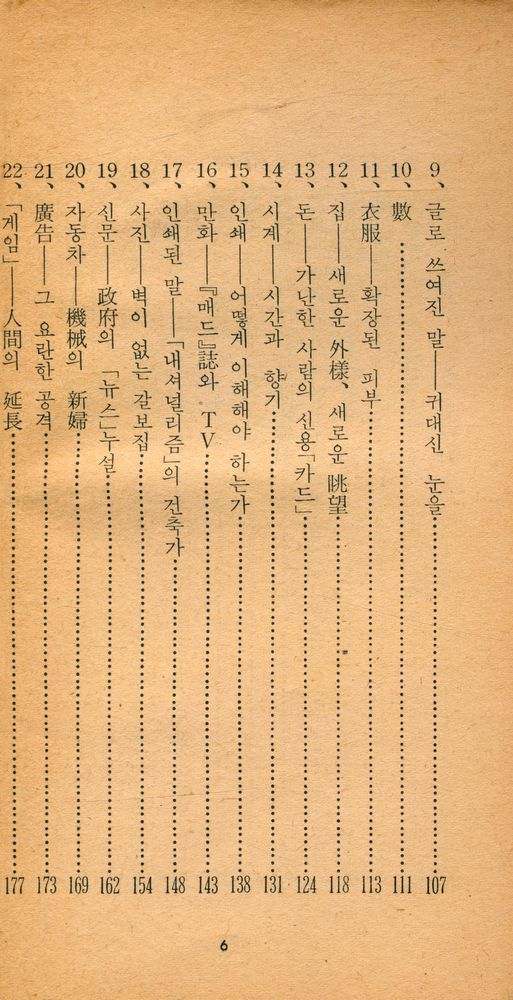 9、글로 쓰여진 말——귀대신 눈을……107
10、數……111
11、衣服——확장된 피부……113
12、집——새로운 外樣、새로운 眺望……118
13、돈——가난한 사람의 신용「카드」……124
14、시계——시간과 향기……131
15、인쇄——어떻게 이해해야 하는가……138
16、만화——『매드』誌와 TV……143
17、인쇄된 말——「내셔널리즘」의 건축가……148
18、사진——벽이 없는 갈보집……154
19、신문——政府의 「뉴스」누설……162
20、자동차——機械의 新婦……169
21、廣告——그 요란한 공격……173
22、「게임」——人間의 延長……177
6